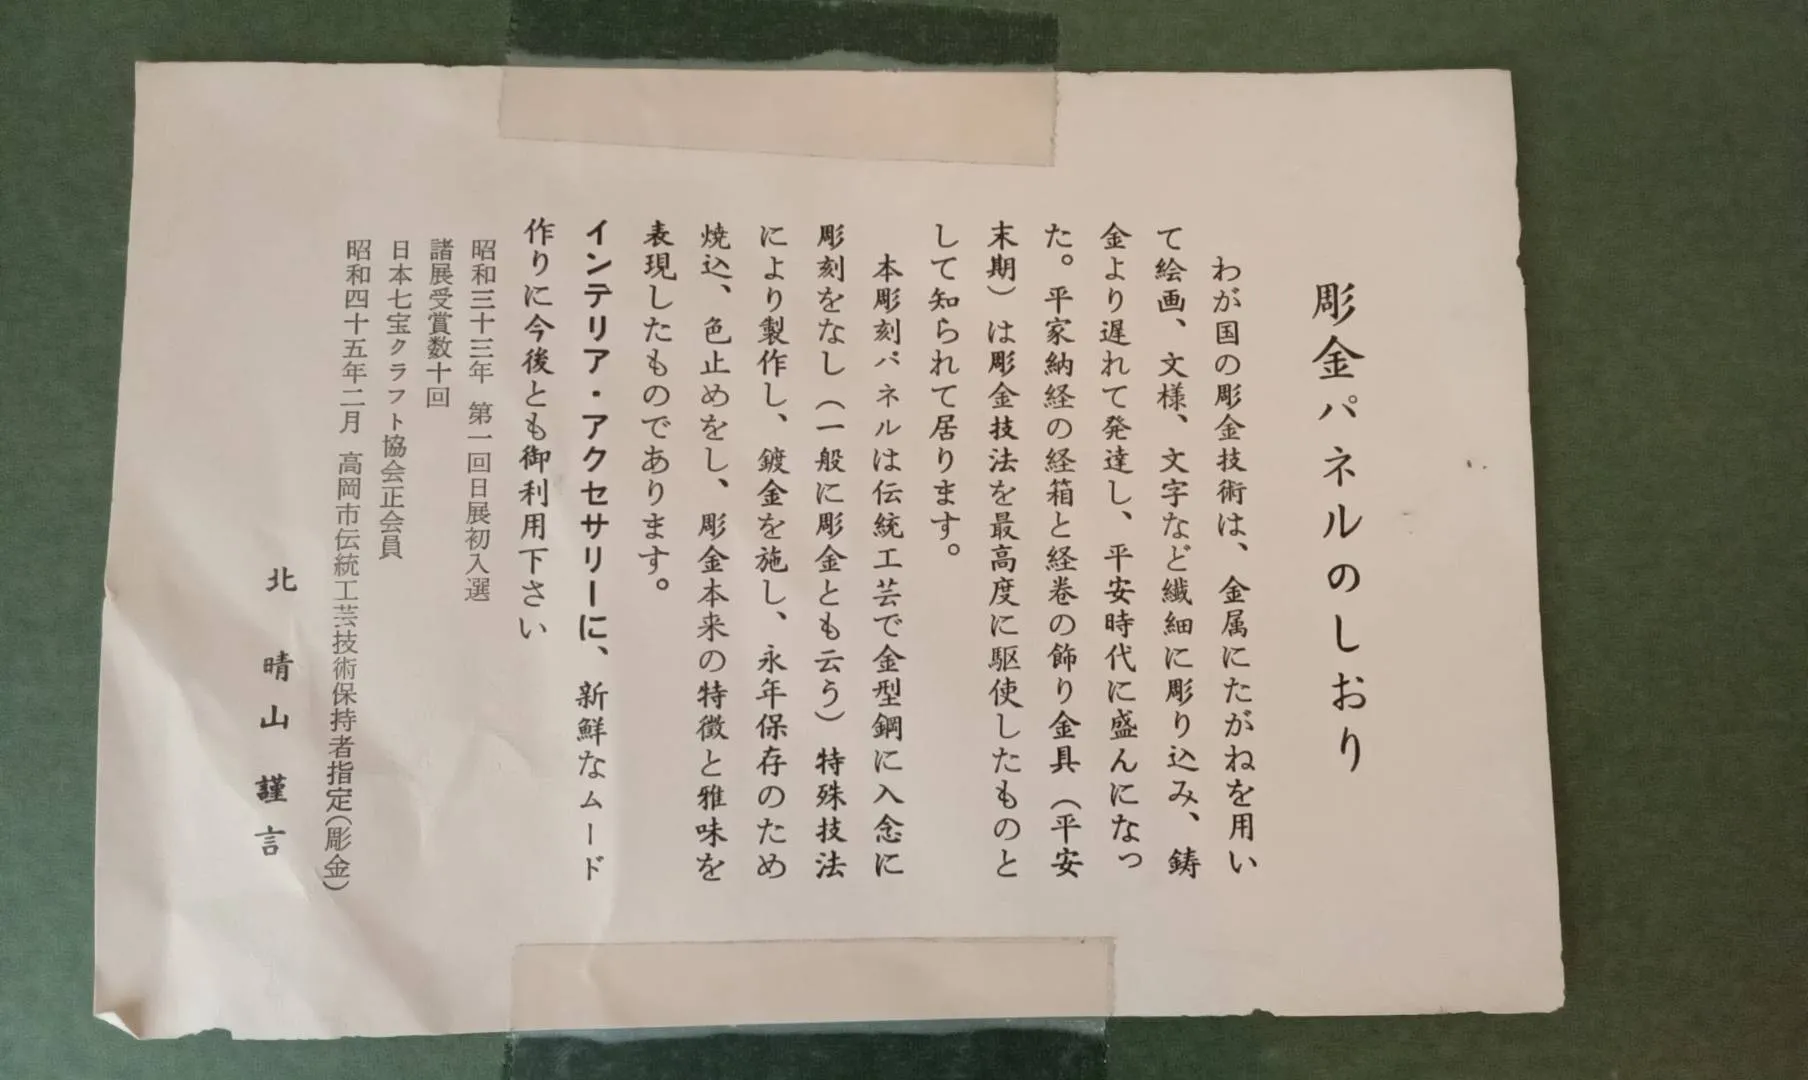 彫金パネルのしおり
わが国の彫金技術は、金属にたがねを用い
て絵画、文様、文字など繊細に彫り込み、鋳
金より遅れて発達し、平安時代に盛んになっ
た。平家納経の経箱と経巻の飾り金具（平安
末期）は彫金技法を最高度に駆使したものと
して知られて居ります。
本彫刻パネルは伝統工芸で金型鋼に入念に
彫刻をなし（一般に彫金とも云う）特殊技法
により製作し、鍍金を施し、永年保存のため
焼込、色止めをし、彫金本来の特徴と雅味を
表現したものであります。
インテリア・アクセサリーに、新鮮なムード
作りに今後とも御利用下さい
昭和三十三年 第一回日展初入選
諸展受賞数十回
日本七宝クラフト協会正会員
昭和四十五年二月 高岡市伝統工芸技術保持者指定（彫金）
北 晴山 謹言